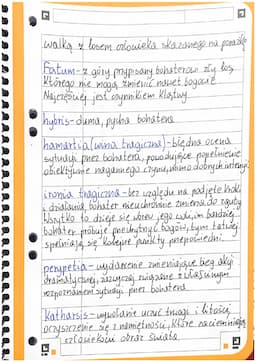 walką z losem człowieka skazanego na porażkę
Fatum - z góry przypisany bohaterowi zły los,
którego nie mogą zmienić nawet bogowie.
Najczęściej jest wynikiem klątwy.
hybris - duma, pycha bohatera
hamartia (wina tragiczna) - błędna ocena
sytuacji przez bohatera, powodujące popełnienie
obiektywnie nagannego czynu, mimo dobrych intencji.
ironia tragiczna - bez względu na podjęte kroki
i działania, bohater nieuchronnie zmierza do zguby.
Wszystko to dzieje się wbrew jego woli, im bardziej
bohater próbuje przechytrzyć bogów, tym łatwiej
spełniają się kolejne punkty przepowiedni.
perypetia - wydarzenie zmieniające bieg akcji
dramatycznej, zazwyczaj związane z właściwym
rozpoznaniem sytuacji przez bohatera
Katharsis - wywołanie uczuć trwogi i litości,
oczyszczenie się z namiętności, które zaciemniają
człowiekowi obraz świata